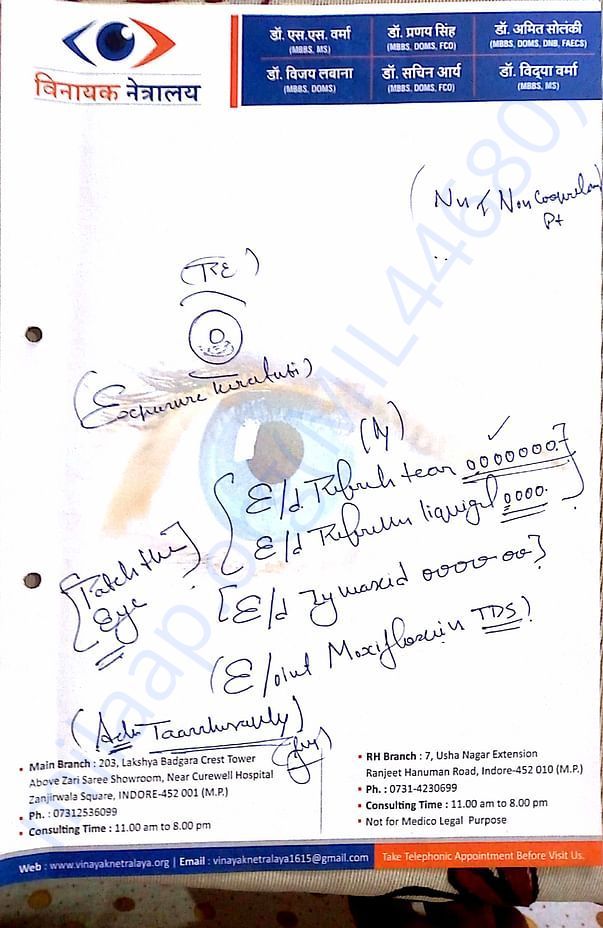 विनायक नेत्रालय
डॉ. एस.एस. वर्मा
(MBBS, MS)
डॉ. प्रणय सिंह
(MBBS, DOMS, FCO)
डॉ. अमित सोलंकी
(MBBS, DOMS, DNB, FAECS)
डॉ. विजय लवाना
(MBBS, DOMS)
डॉ. सचिन आर्य
(MBBS, DOMS, FCO)
डॉ. विद्या वर्मा
(MBBS, MS)
Pt
(RE)
E/d Refresh tear 0000000
E/d liquigel 0000
[Patch the
Eye
[E/d Zymaxid 000000]
(E/oint Moxifloxacin TDS)
• Main Branch : 203, Lakshya Badgara Crest Tower
Above Zari Saree Showroom, Near Curewell Hospital
Zanjirwala Square, INDORE-452 001 (M.P.)
• Ph. : 07312536099
• Consulting Time : 11.00 am to 8.00 pm
• RH Branch : 7, Usha Nagar Extension
Ranjeet Hanuman Road, Indore-452 010 (M.P.)
• Ph. : 0731-4230699
• Consulting Time : 11.00 am to 8.00 pm
• Not for Medico Legal Purpose
Web : www.vinayaknetralaya.org | Email : vinayaknetralaya1615@gmail.com
Take Telephonic Appointment Before Visit Us.